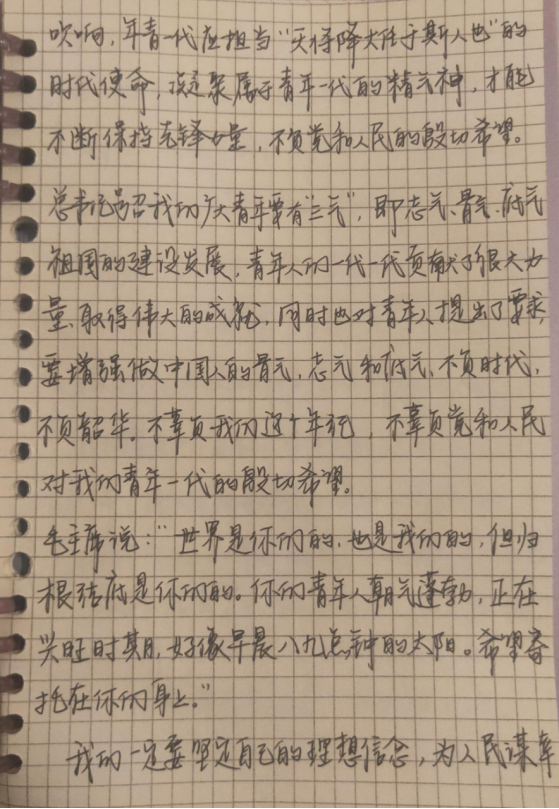 吹响，年青一代应担当“天将降大任于斯人也”的
时代使命，凝聚属于青年一代的精气神，才能
不断保持先锋力量，不负党和人民的殷切希望。
总书记号召我们广大青年要有“三气”，即志气、骨气、底气
祖国的建设发展，青年人们一代一代贡献了很大力
量，取得伟大的成就，同时也对青年人提出了要求，
要增强做中国人的骨气、志气和底气，不负时代，
不负韶华，不辜负我们这个年纪，不辜负党和人民
对我们青年一代的殷切希望。
毛主席说：“世界是你们的，也是我们的，但归
根结底是你们的。你们青年人朝气蓬勃，正在
兴旺时期，好像早晨八九点钟的太阳。希望寄
托在你们身上。”
我们一定要坚定自己的理想信念，为人民谋幸